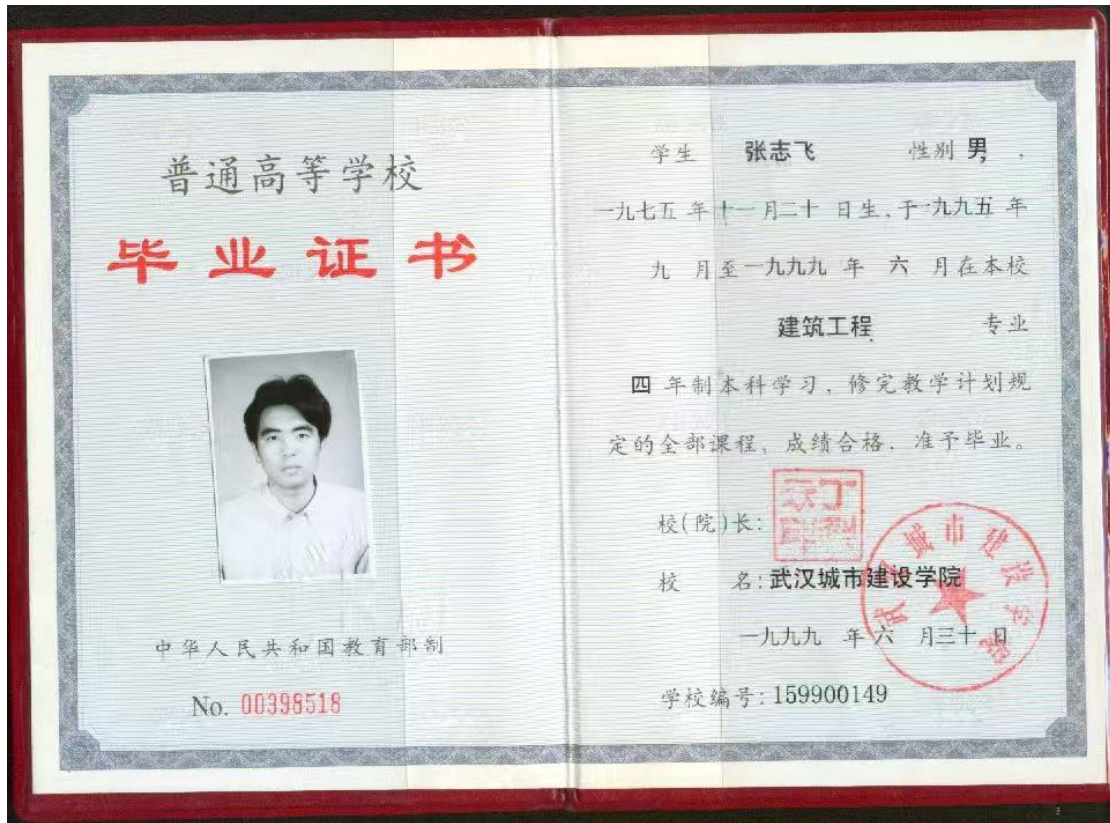 普通高等学校
毕业证书
中华人民共和国教育部制
No. 00398518
学生 张志飞 性别 男,
一九七五 年 十一 月二十 日生,于一九九五 年
九 月至一九九九 年 六 月在本校
建筑工程 专业
四 年制本科学习,修完教学计划规
定的全部课程,成绩合格,准予毕业。
校(院)长:
校 名:武汉城市建设学院
一九九九 年 六 月三十 日
学校编号:159900149
武汉城市建设学院